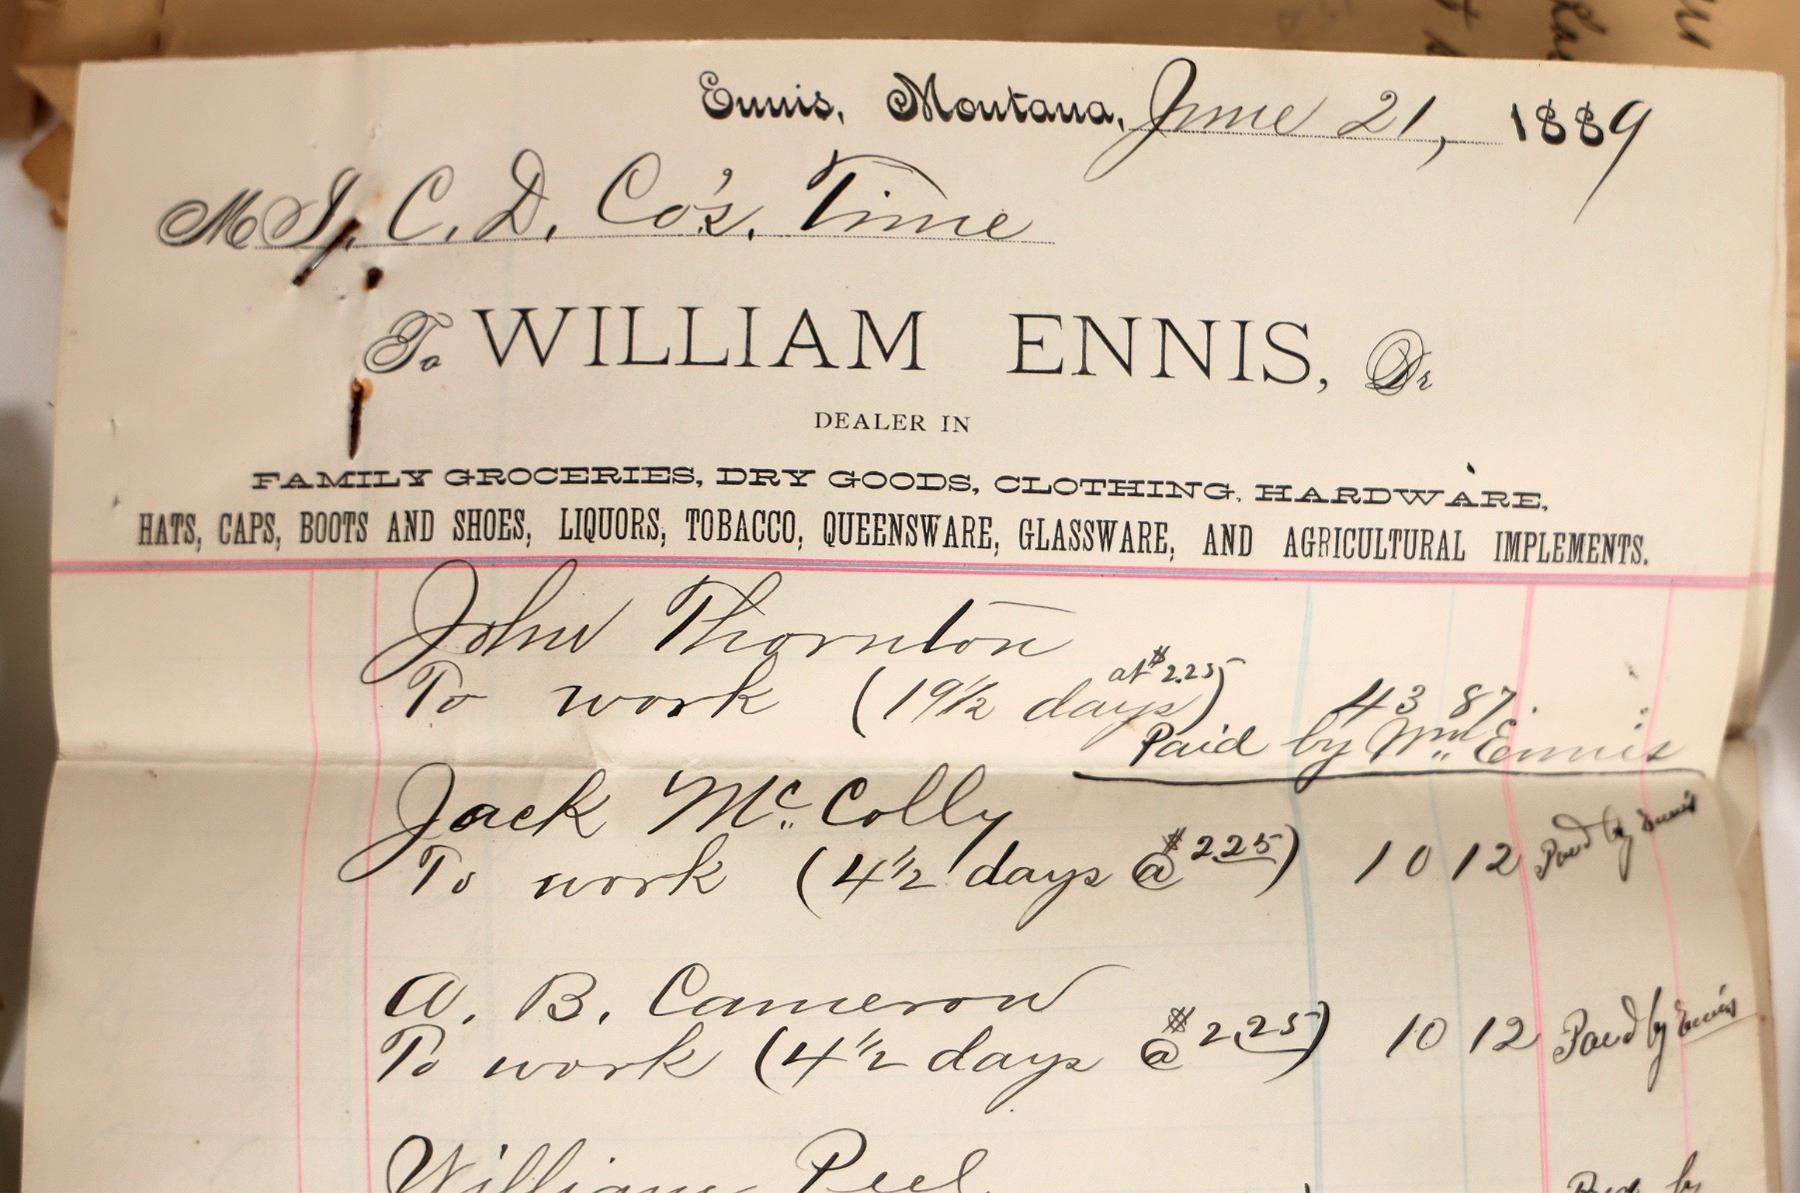 Ennis, Montana, June 21, 1889
M J. C. D. Co's. Time
To WILLIAM ENNIS, Dr
DEALER IN
FAMILY GROCERIES, DRY GOODS, CLOTHING, HARDWARE,
HATS, CAPS, BOOTS AND SHOES, LIQUORS, TOBACCO, QUEENSWARE, GLASSWARE, AND AGRICULTURAL IMPLEMENTS.
John Thornton
To work (19 1/2 days at $2.25) 43 87
Paid by Wm. Ennis
Jack Mc. Colly
To work (4 1/2 days @ $2.25) 10 12 Paid by Ennis
A. B. Cameron
To work (4 1/2 days @ $2.25) 10 12 Paid by Ennis
William Peel
Paid by